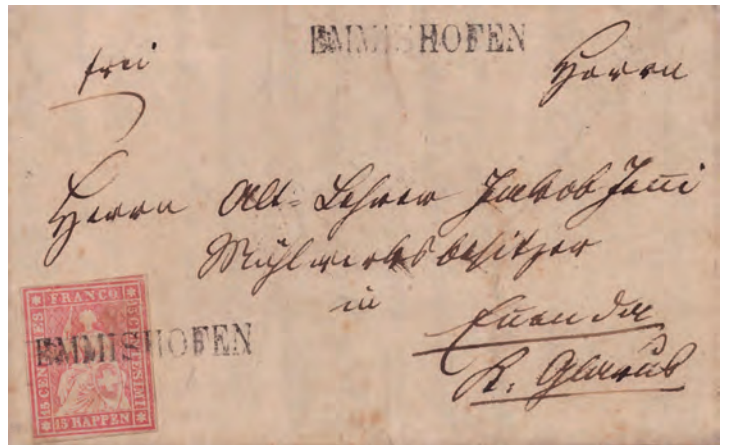 EMMISHOFEN
frei
Herrn
Herrn Alt-Lehrer Jakob Jenni
Mühlwerksbesitzer
in
Ennenda
K. Glarus
FRANCO
15 CENTES
15 CENTESIMI
15 RAPPEN
EMMISHOFEN